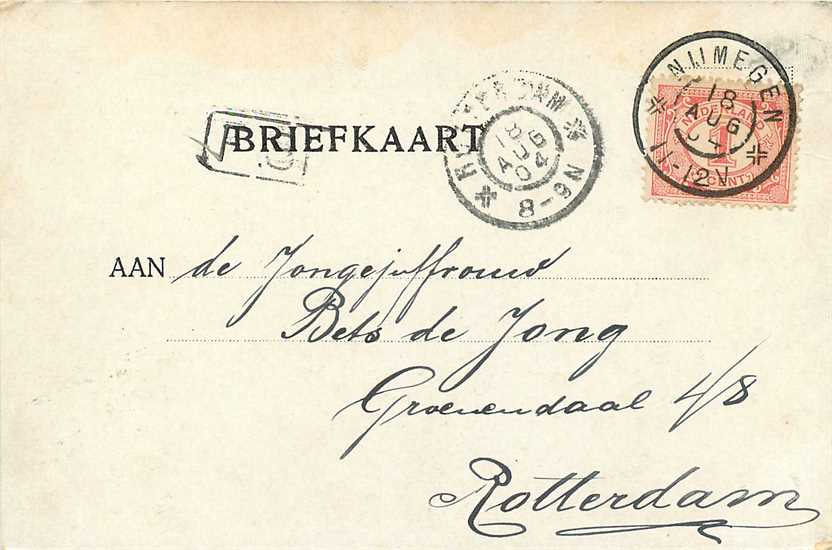 NIJMEGEN
18
AUG
04
11-12V
NEDERLAND
1
CENT
ROTTERDAM
18
AUG
04
8-9N
BRIEFKAART
AAN de Jongejuffrouw
Bets de Jong
Groenendaal 4/8
Rotterdam